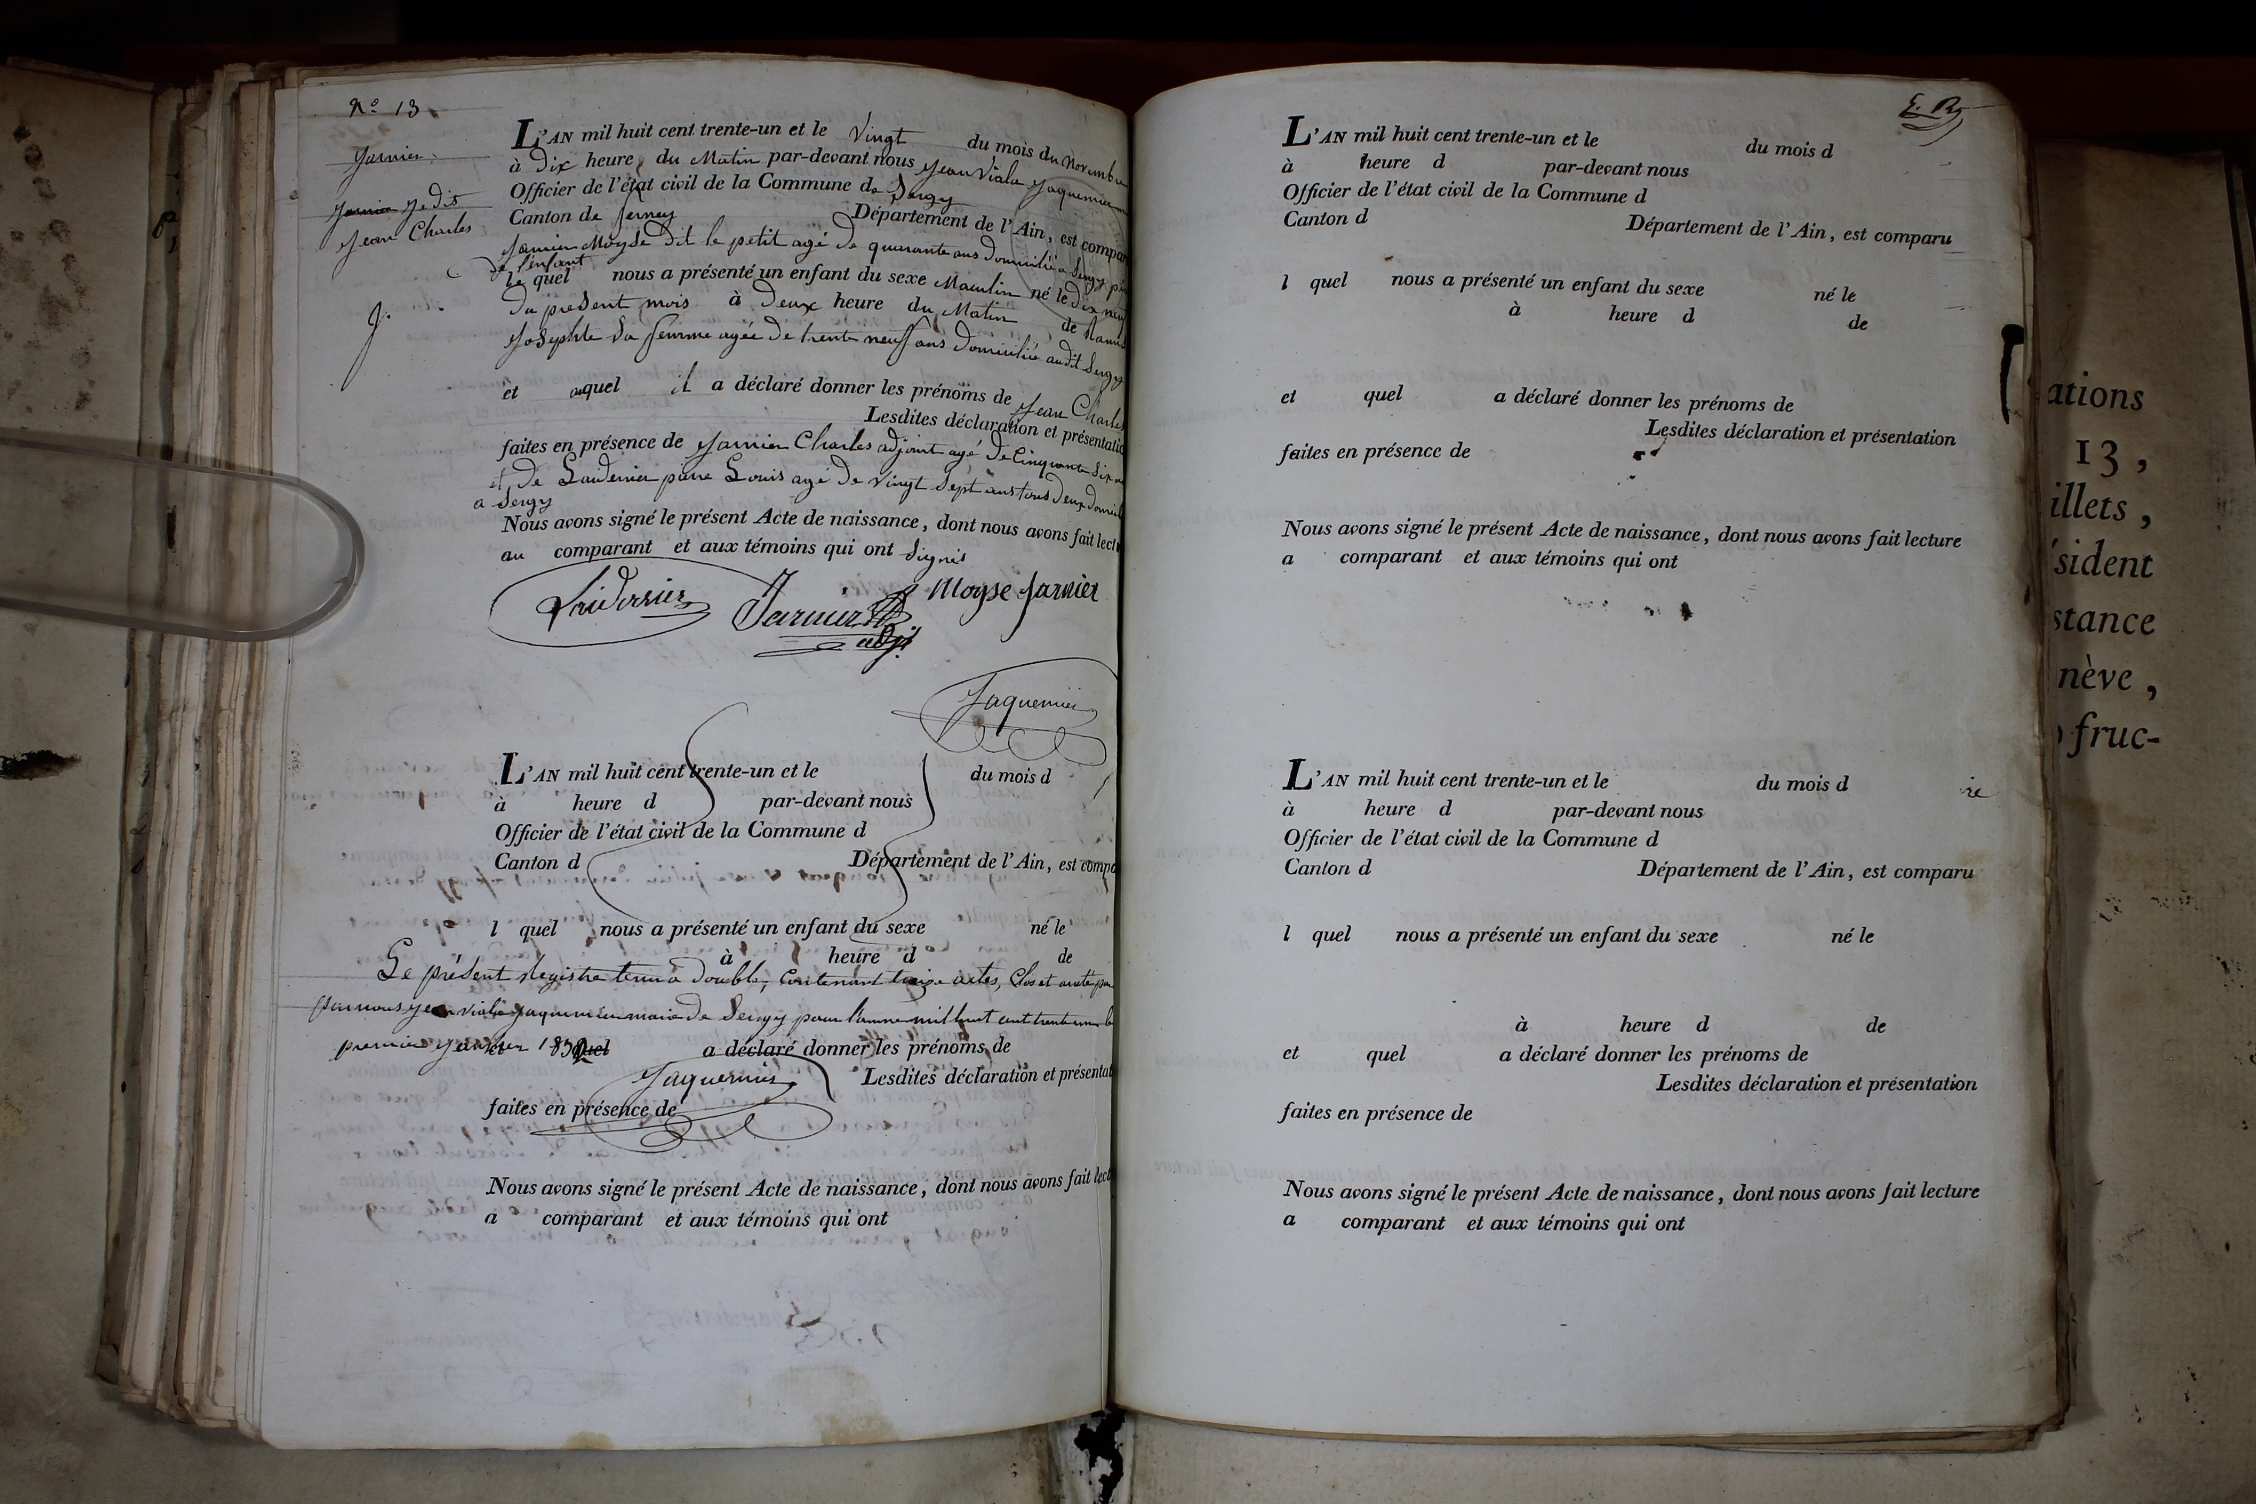 N.º 13
Jarnier
Jean Charles
L'AN mil huit cent trente-un et le Vingt du mois du Novembre
à Dix heure du Matin par-devant nous Jean Viala Jaquemier
Officier de l'état civil de la Commune de Sergy
Canton de Ferney Département de l'Ain, est compar
Jarnier Moyse dit le petit agé de quarante ans domicilié a Sergy
de l'enfant
le quel nous a présenté un enfant du sexe Masculin né le Dix neuf
Du present mois à Deux heure du Matin de
Josephte Sa femme agée de trente neuf ans domiciliée audit Sergy
et auquel il a déclaré donner les prénoms de Jean Charles
Lesdites déclaration et présentatio
faites en présence de Jarnier Charles adjoint agé de Cinquante Six
et de Laudernier pierre Louis agé de vingt Sept ans tous Deux
a Sergy
Nous avons signé le présent Acte de naissance, dont nous avons fait lectu
au comparant et aux témoins qui ont Signés
Jarnier adj.t Moyse Jarnier
Jaquemier
L'AN mil huit cent trente-un et le du mois d
à heure d par-devant nous
Officier de l'état civil de la Commune d
Canton d Département de l'Ain, est compa
l quel nous a présenté un enfant du sexe né le
à heure d de
Le présent Registre tenu a double, Contenant treize actes, Clos et areté par
par nous Jean Viala Jaquemier maire de Sergy pour l'anné mil huit cent trente un le
premier Janvier 1832 quel a déclaré donner les prénoms de
Jaquemier Lesdites déclaration et présentat
faites en présence de
Nous avons signé le présent Acte de naissance, dont nous avons fait lect
a comparant et aux témoins qui ont
L'AN mil huit cent trente-un et le du mois d
à heure d par-devant nous
Officier de l'état civil de la Commune d
Canton d Département de l'Ain, est comparu
l quel nous a présenté un enfant du sexe né le
à heure d de
et quel a déclaré donner les prénoms de
Lesdites déclaration et présentation
faites en présence de
Nous avons signé le présent Acte de naissance, dont nous avons fait lecture
a comparant et aux témoins qui ont
L'AN mil huit cent trente-un et le du mois d
à heure d par-devant nous
Officier de l'état civil de la Commune d
Canton d Département de l'Ain, est comparu
l quel nous a présenté un enfant du sexe né le
à heure d de
et quel a déclaré donner les prénoms de
Lesdites déclaration et présentation
faites en présence de
Nous avons signé le présent Acte de naissance, dont nous avons fait lecture
a comparant et aux témoins qui ont
ations
13,
illets,
sident
stance
nève,
fruc-